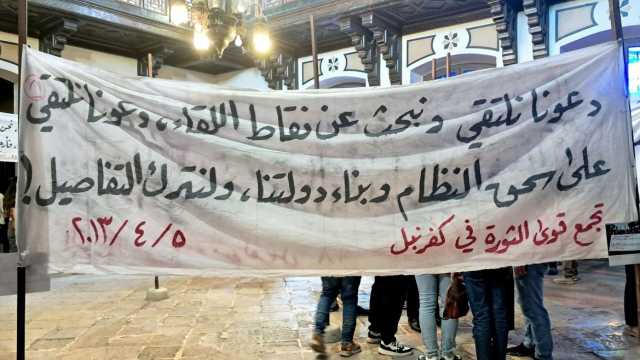 دعونا نلتقي ونبحث عن نقاط اللقاء، دعونا نلتقي
على سحق النظام وبناء دولتنا، ولنترك التفاصيل!
تجمع قوى الثورة في كفرنبل
٢٠١٣/٤/٥